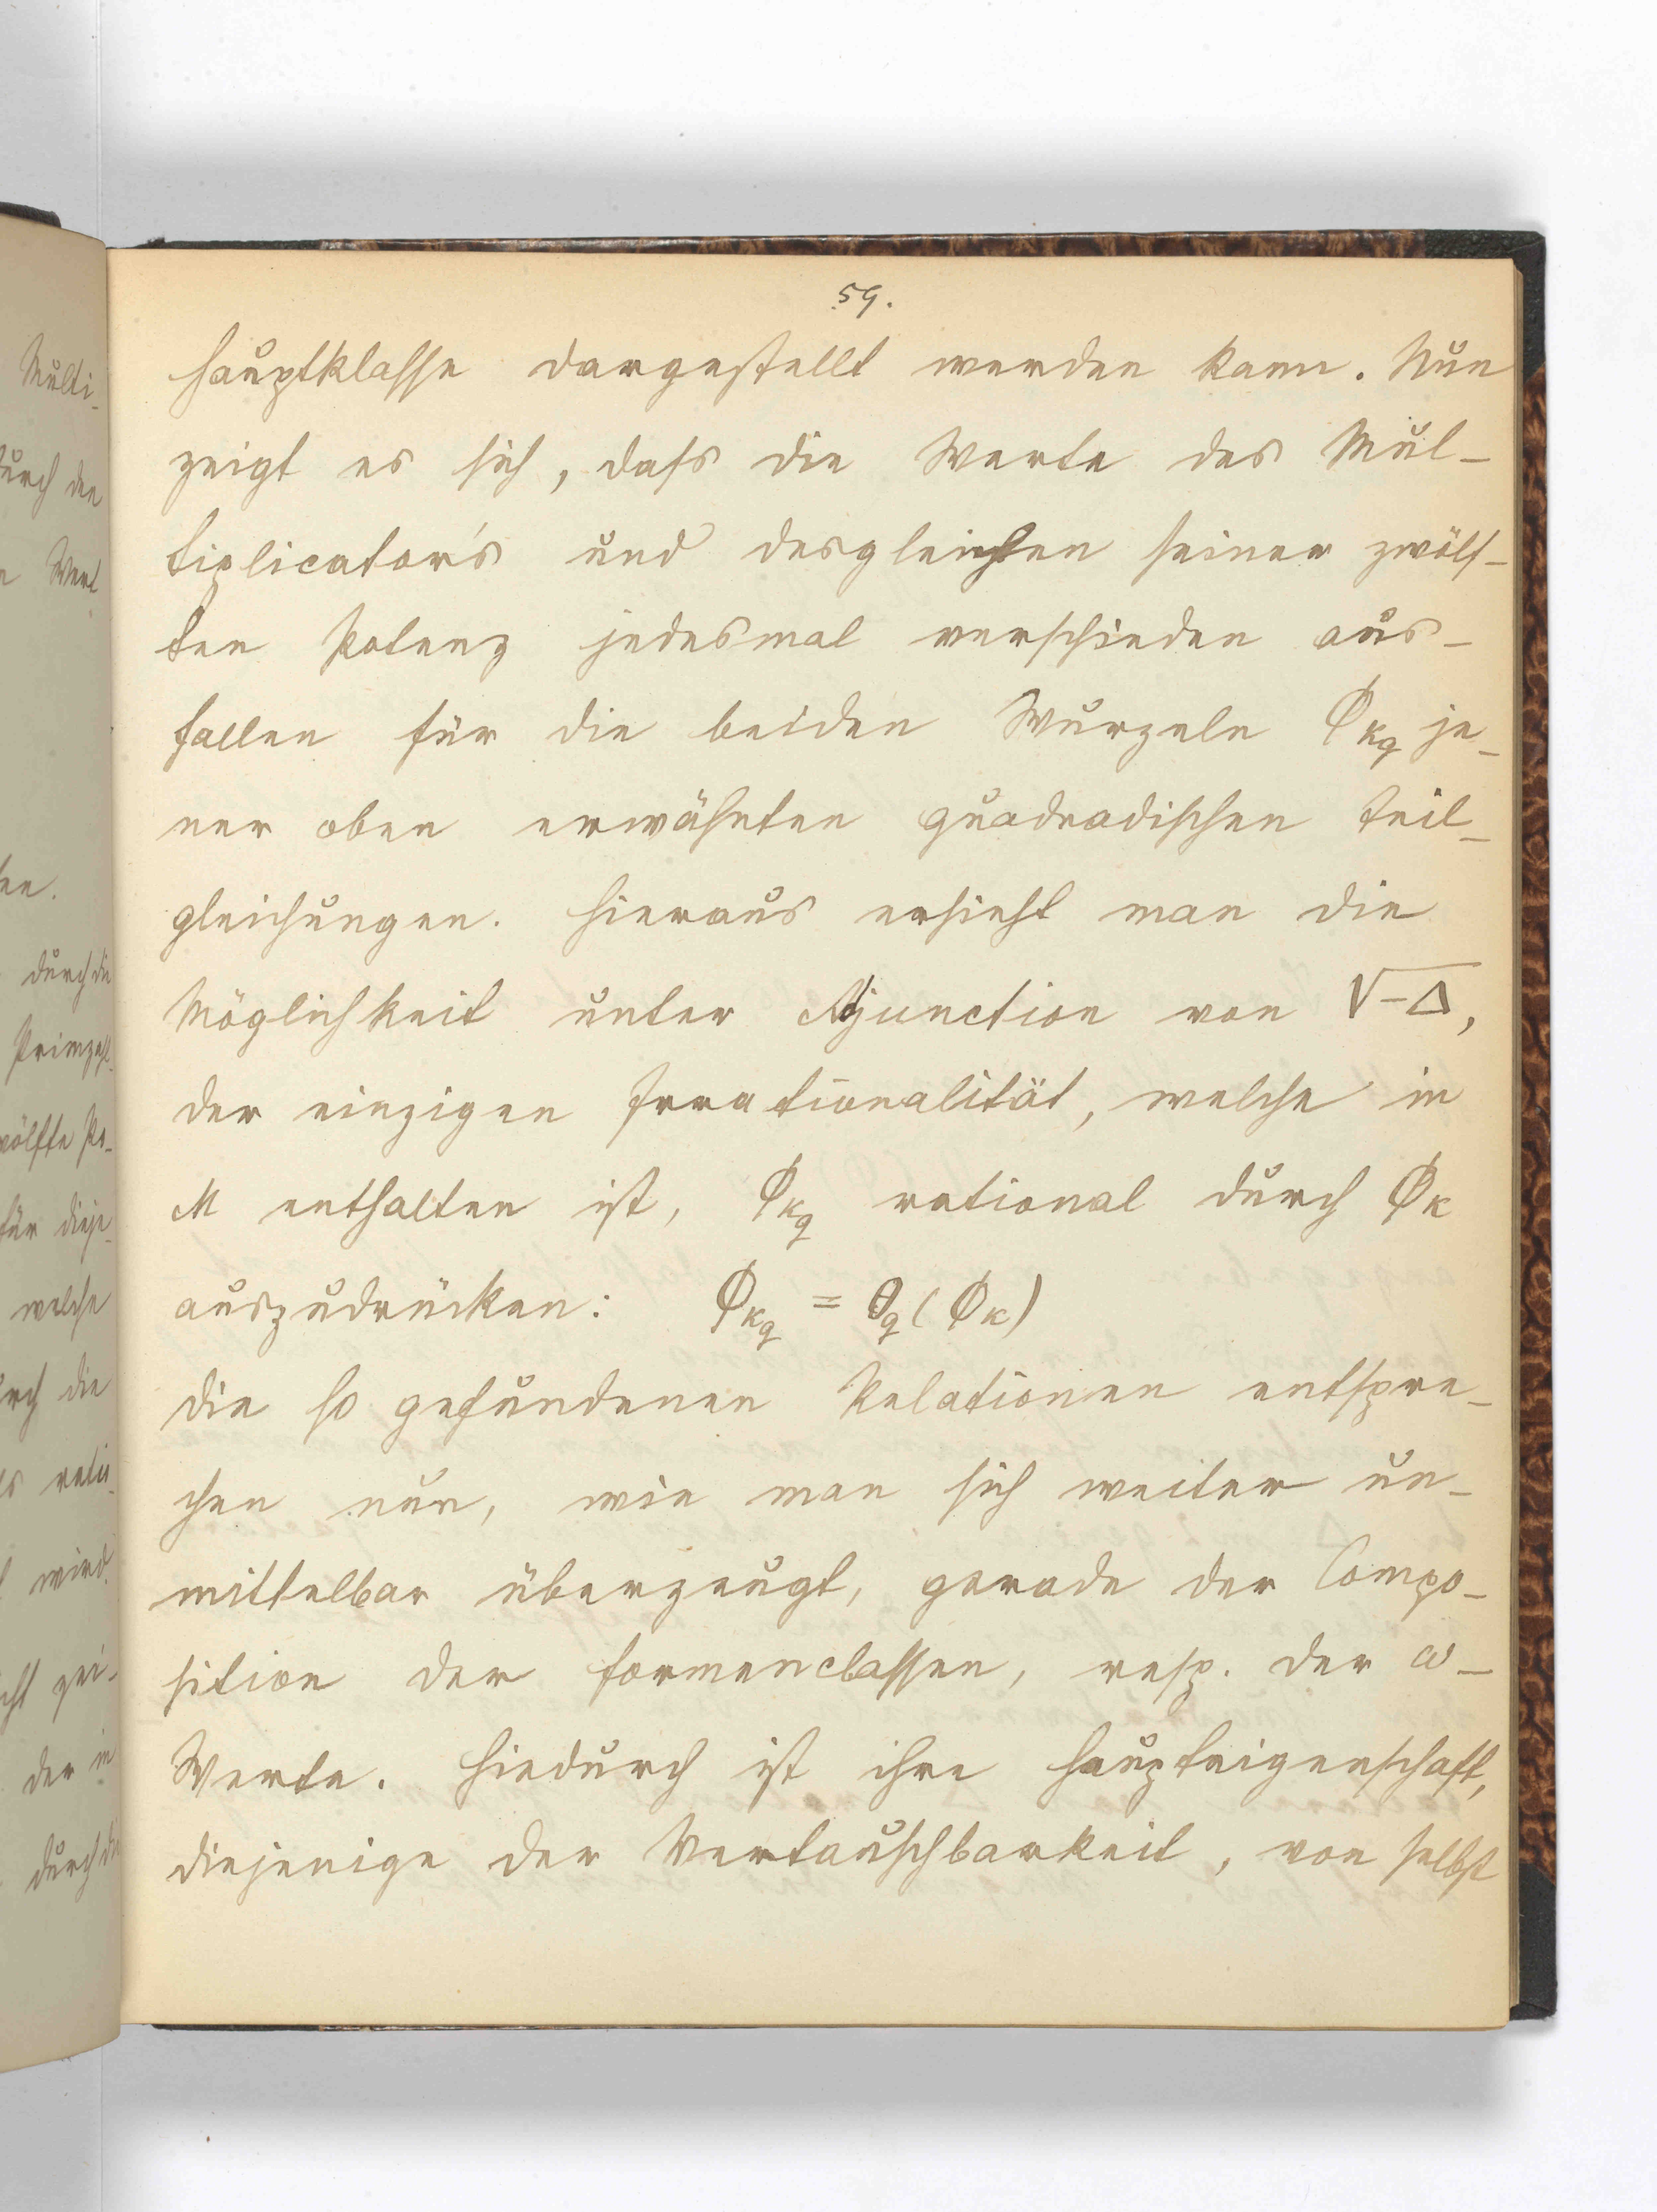 59.
Hauptklasse dargestellt werden kann. Nun
zeigt es sich, dass die Werte des Mul-
tiplicator's und desgleichen seiner zwölf-
ten Potenz jedesmal verschieden aus-
fallen für die beiden Wurzeln ϕ_{k_q} je-
ner oben erwähnten quadradischen Teil-
gleichungen. Hieraus ersieht man die
Möglichkeit unter Adjunction von √-Δ,
der einzigen Irrationalität, welche in
M enthalten ist, ϕ_{k_q} rational durch ϕ_k
auszudrücken: ϕ_{k_q} = θ_q(ϕ_k)
Die so gefundenen Relationen entspre-
chen nun, wie man sich weiter un-
mittelbar überzeugt, gerade der Compo-
sition der Formenclassen, resp. der ω-
Werte. Hiedurch ist ihre Haupteigenschaft,
diejenige der Vertauschbarkeit, von selbst
Multi-
durch den
Wert
durch die
Primzahl
zwölfte Po-
für dieje-
welche
durch die
wird.
der in
durch die